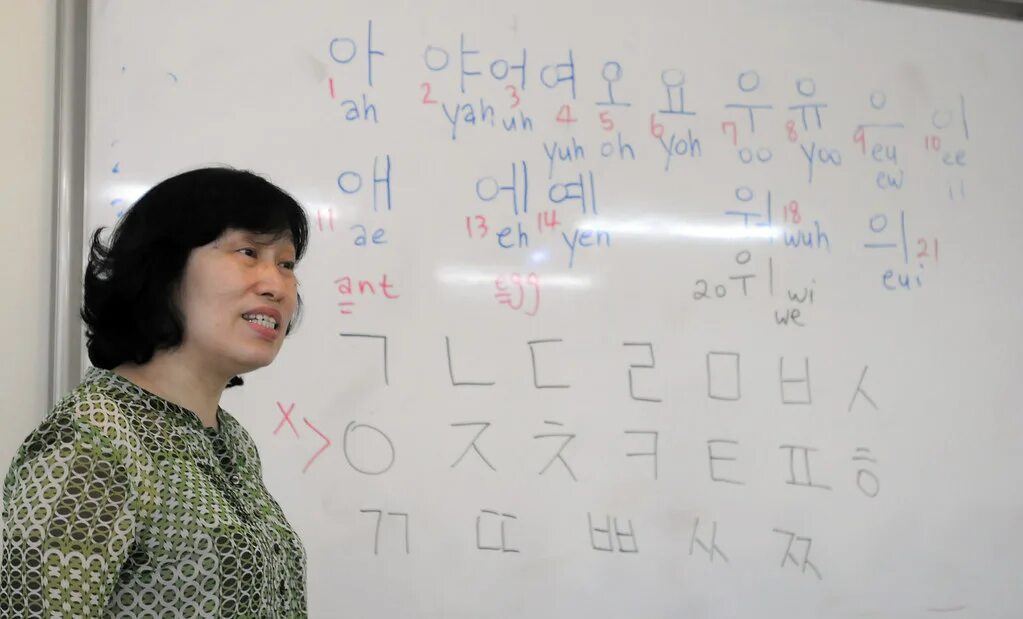 아 야 어 여 오 요 우 유 으 이
1 2 3 4 5 6 7 8 9 10
ah yah uh yuh oh yoh oo yoo eu ee
ew
애 에 예 워 의
11 13 14 18 21
ae eh yeh wuh eui
ant egg
20 위 wi
we
ㄱ ㄴ ㄷ ㄹ ㅁ ㅂ ㅅ
X > ㅇ ㅈ ㅊ ㅋ ㅌ ㅍ ㅎ
ㄲ ㄸ ㅃ ㅆ ㅉ